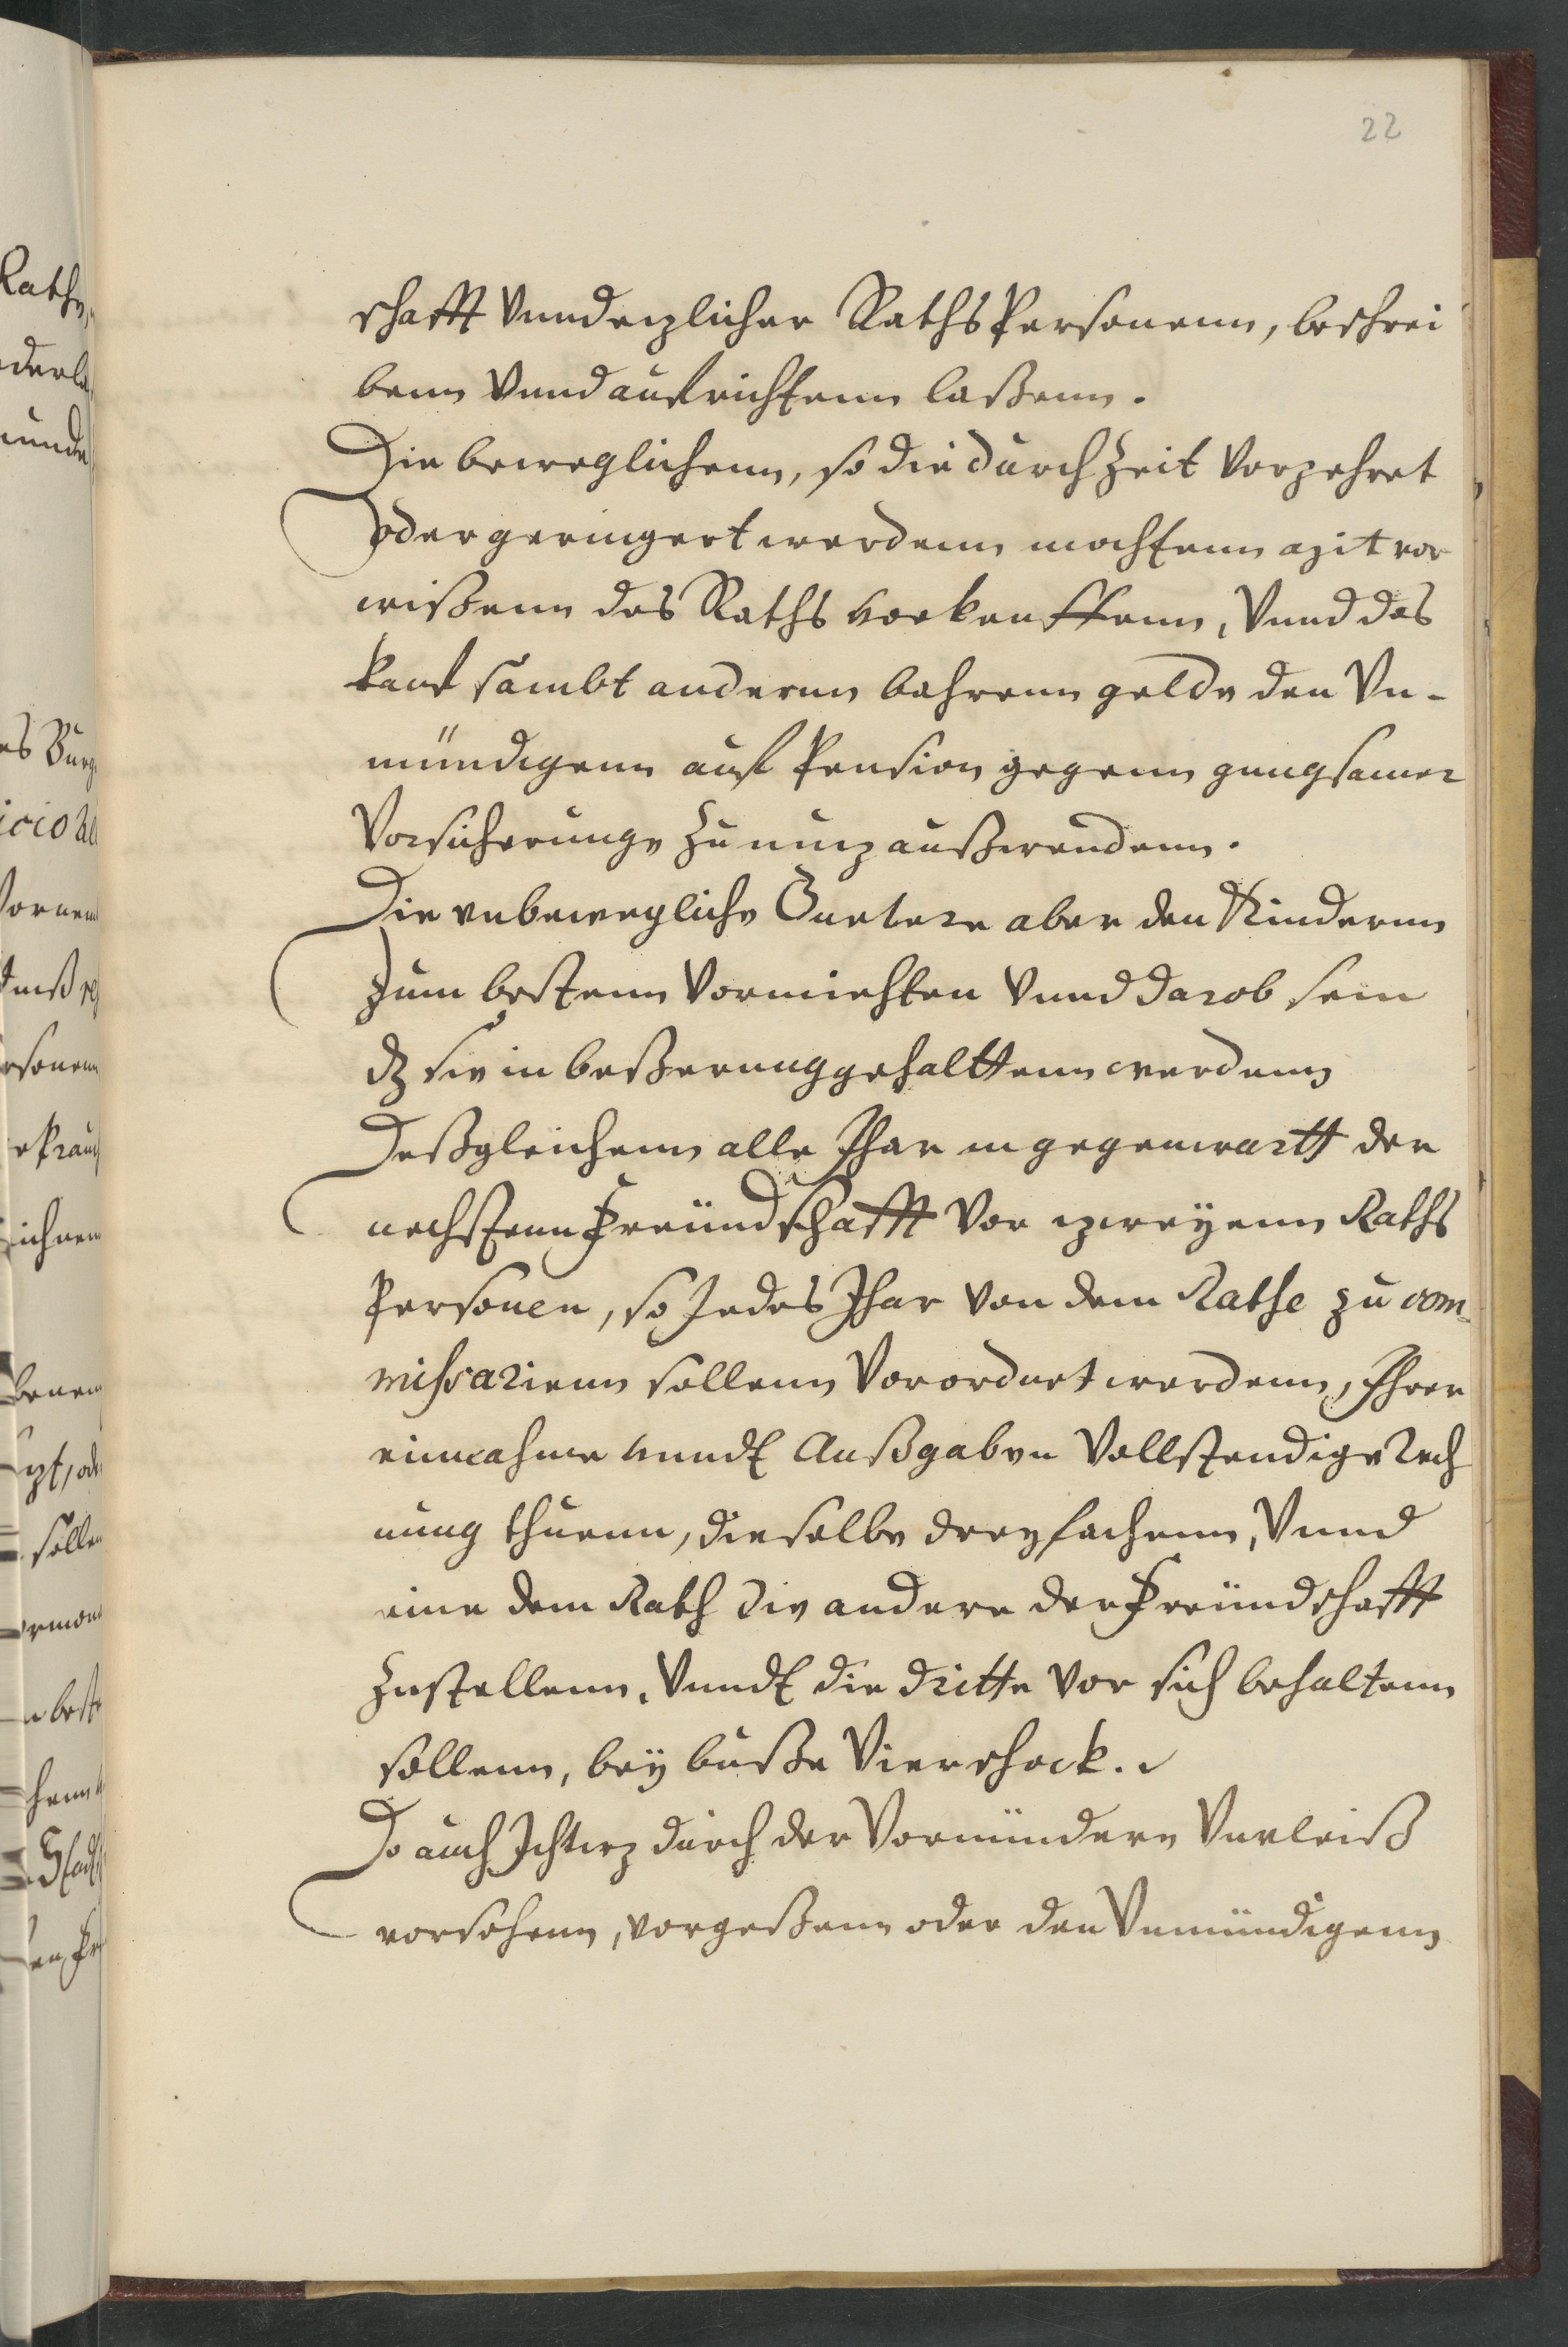 22
schafft Vnnd etzlicher Raths Personenn, beschrei
benn Vnnd aufrichtenn laßenn.
Die beweglichenn, so die durch Zeit Vorzehret
oder geringert werdenn mochtenn mit vor
wißenn des Raths vorkauffenn, Vnnd das
kauf sambt anderm bahrenn gelde den Vn-
mündigenn auf Pension gegenn gnugsamer
Vorsicherunge Zu nutz außwendenn.
Die vnbewegliche Guetere aber den Kindernn
Zum bestenn Vormiehten Vnnd darob sein
dz sie in beßerung gehalttenn werdenn
Deßgleichenn alle Jhar in gegenwartt der
nechstenn Freündschafft Vor zweÿenn Raths
Personen, so Jedes Jhar Von dem Rathe zu com-
missarienn sollenn Vorordnet werdenn, Jhrer
einnahme vnndt Außgaben Vollstendige Rech
nung thuenn, dieselbe dreyfachenn, Vnnd
eine dem Rath die andere der Freündschafft
Zustellenn, Vnndt die dritte Vor sich behaltenn
sollenn, beÿ buße Vier schock.
Do auch Jchtwz durch der Vormündere Vnvleiß
vorsehenn, vorgeßenn oder den Vnmündigenn